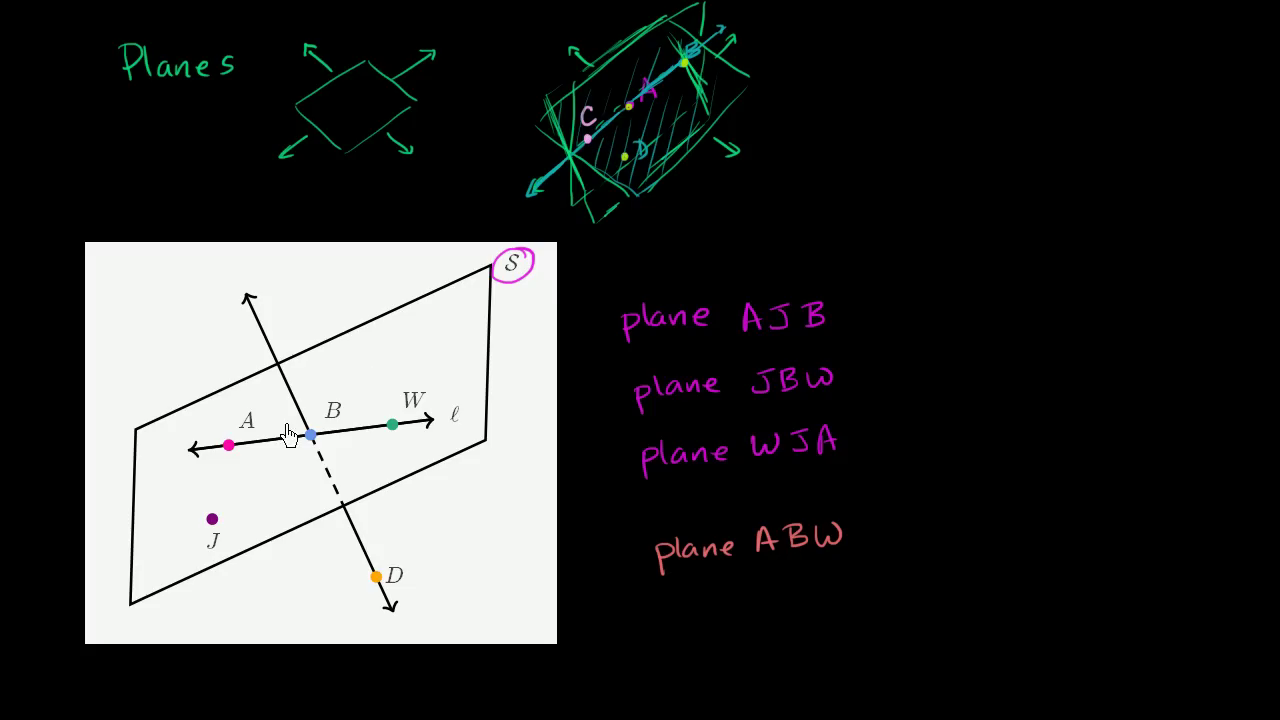 Planes
B
A
C
D
S
A
B
W
ℓ
J
D
plane AJB
plane JBW
plane WJA
plane ABW